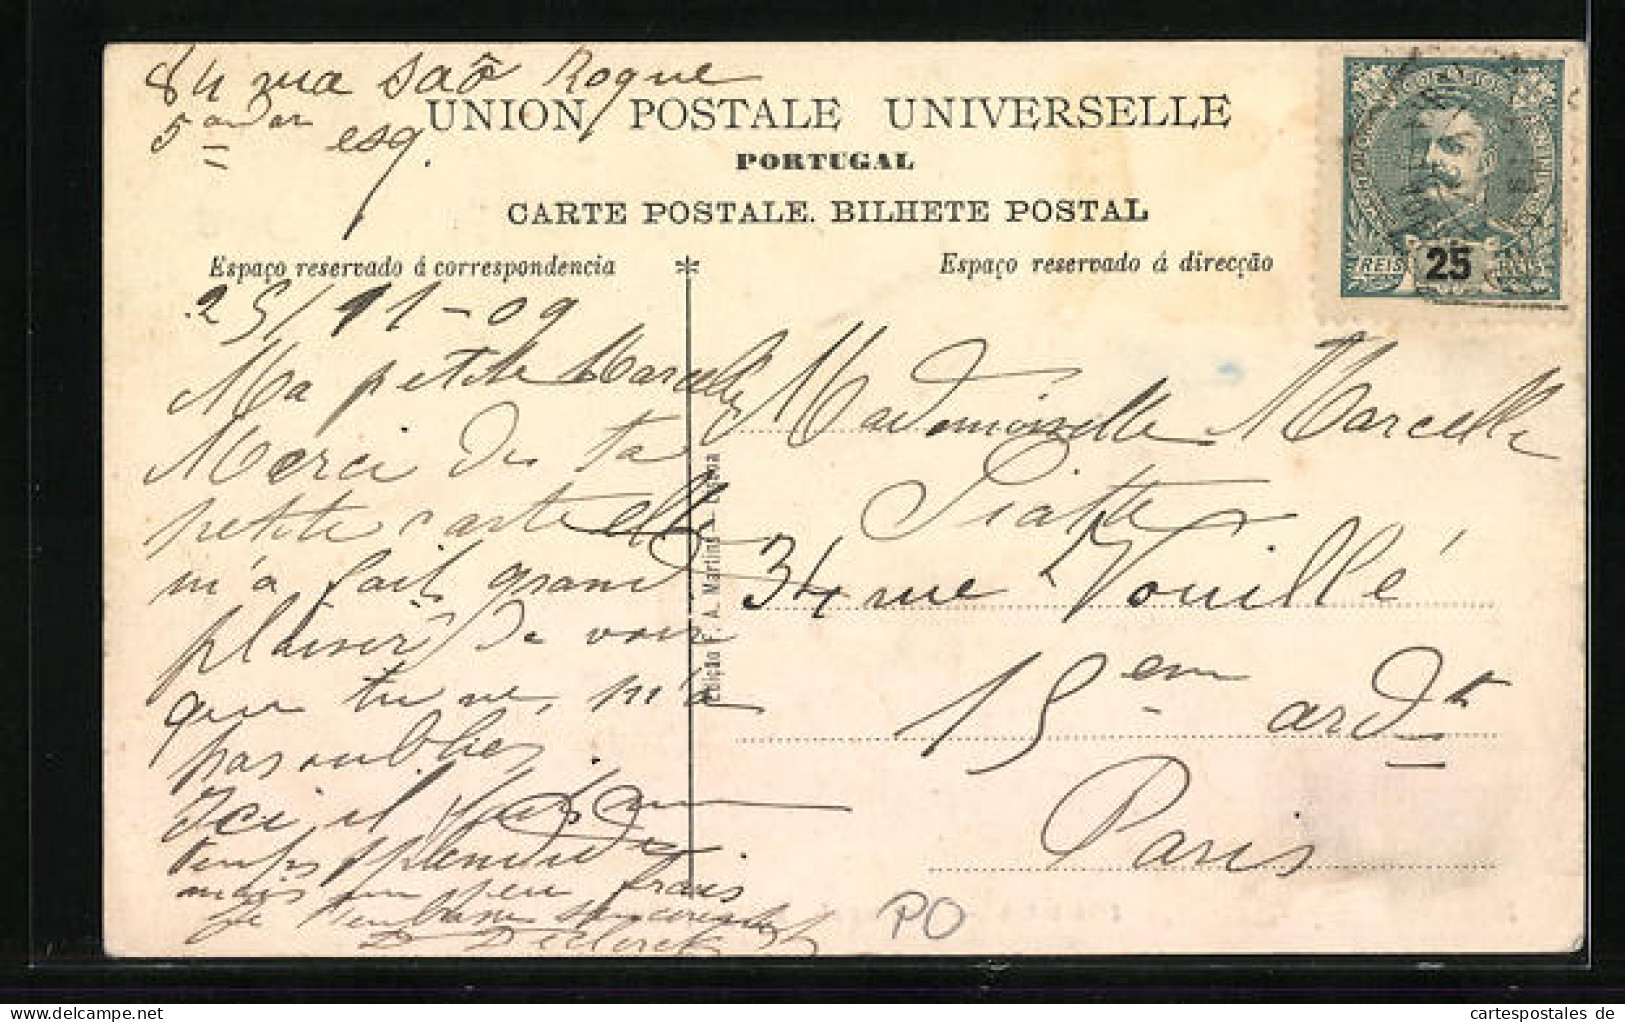 84 rua Saô Roque
5 andar esq.
UNION POSTALE UNIVERSELLE
PORTUGAL
CARTE POSTALE. BILHETE POSTAL
Espaço reservado á correspondencia
Espaço reservado á direcção
REIS 25 REIS
25/11-09
Ma petite Marcelle
Merci de ta
petite carte elle
m'a fait grand
plaisir de voir
que tu ne m'a
pas oublier
Ici il fait un
temps splendide
mais un peu frais
je t'embrasse sincerement
D Declerck
Edição F. A. Martins
Mademoiselle Marcelle
Piatte
34 rue Vouillé
15 em ardt
Paris
PO
cartespostales de